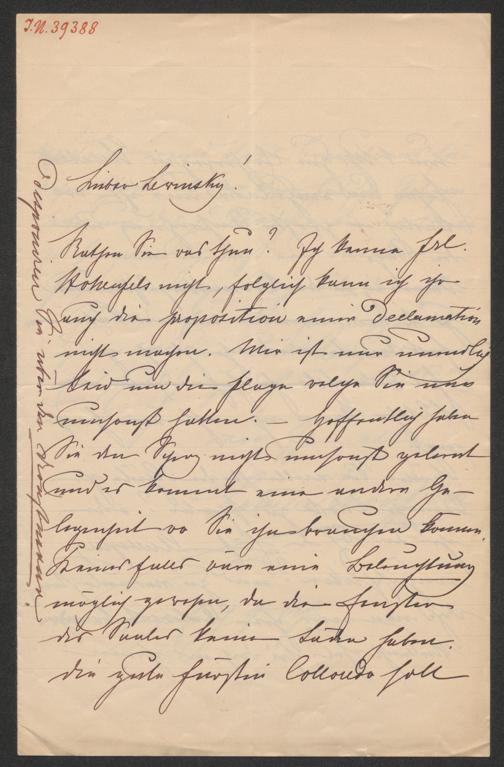 I.N. 39388
Lieber Lewinsky!
Rathen Sie was thun? Ich kenne Frl.
Hohenfels nicht, folglich kann ich ihr
auch die proposition einer Declamation
nicht machen. Mir ist nur unendlich
leid um die Plage welche Sie nun
umsonst hatten. — Hoffentlich haben
Sie den Scherz nicht umsonst gelernt
und es kommt eine andere Ge-
legenheit wo Sie ihn brauchen können.
Keinesfalls wäre eine Beleuchtung
möglich gewesen, da die Fenster
des Saales keine Läden haben.
Die gute Fürstin Colloredo soll
Sie über den